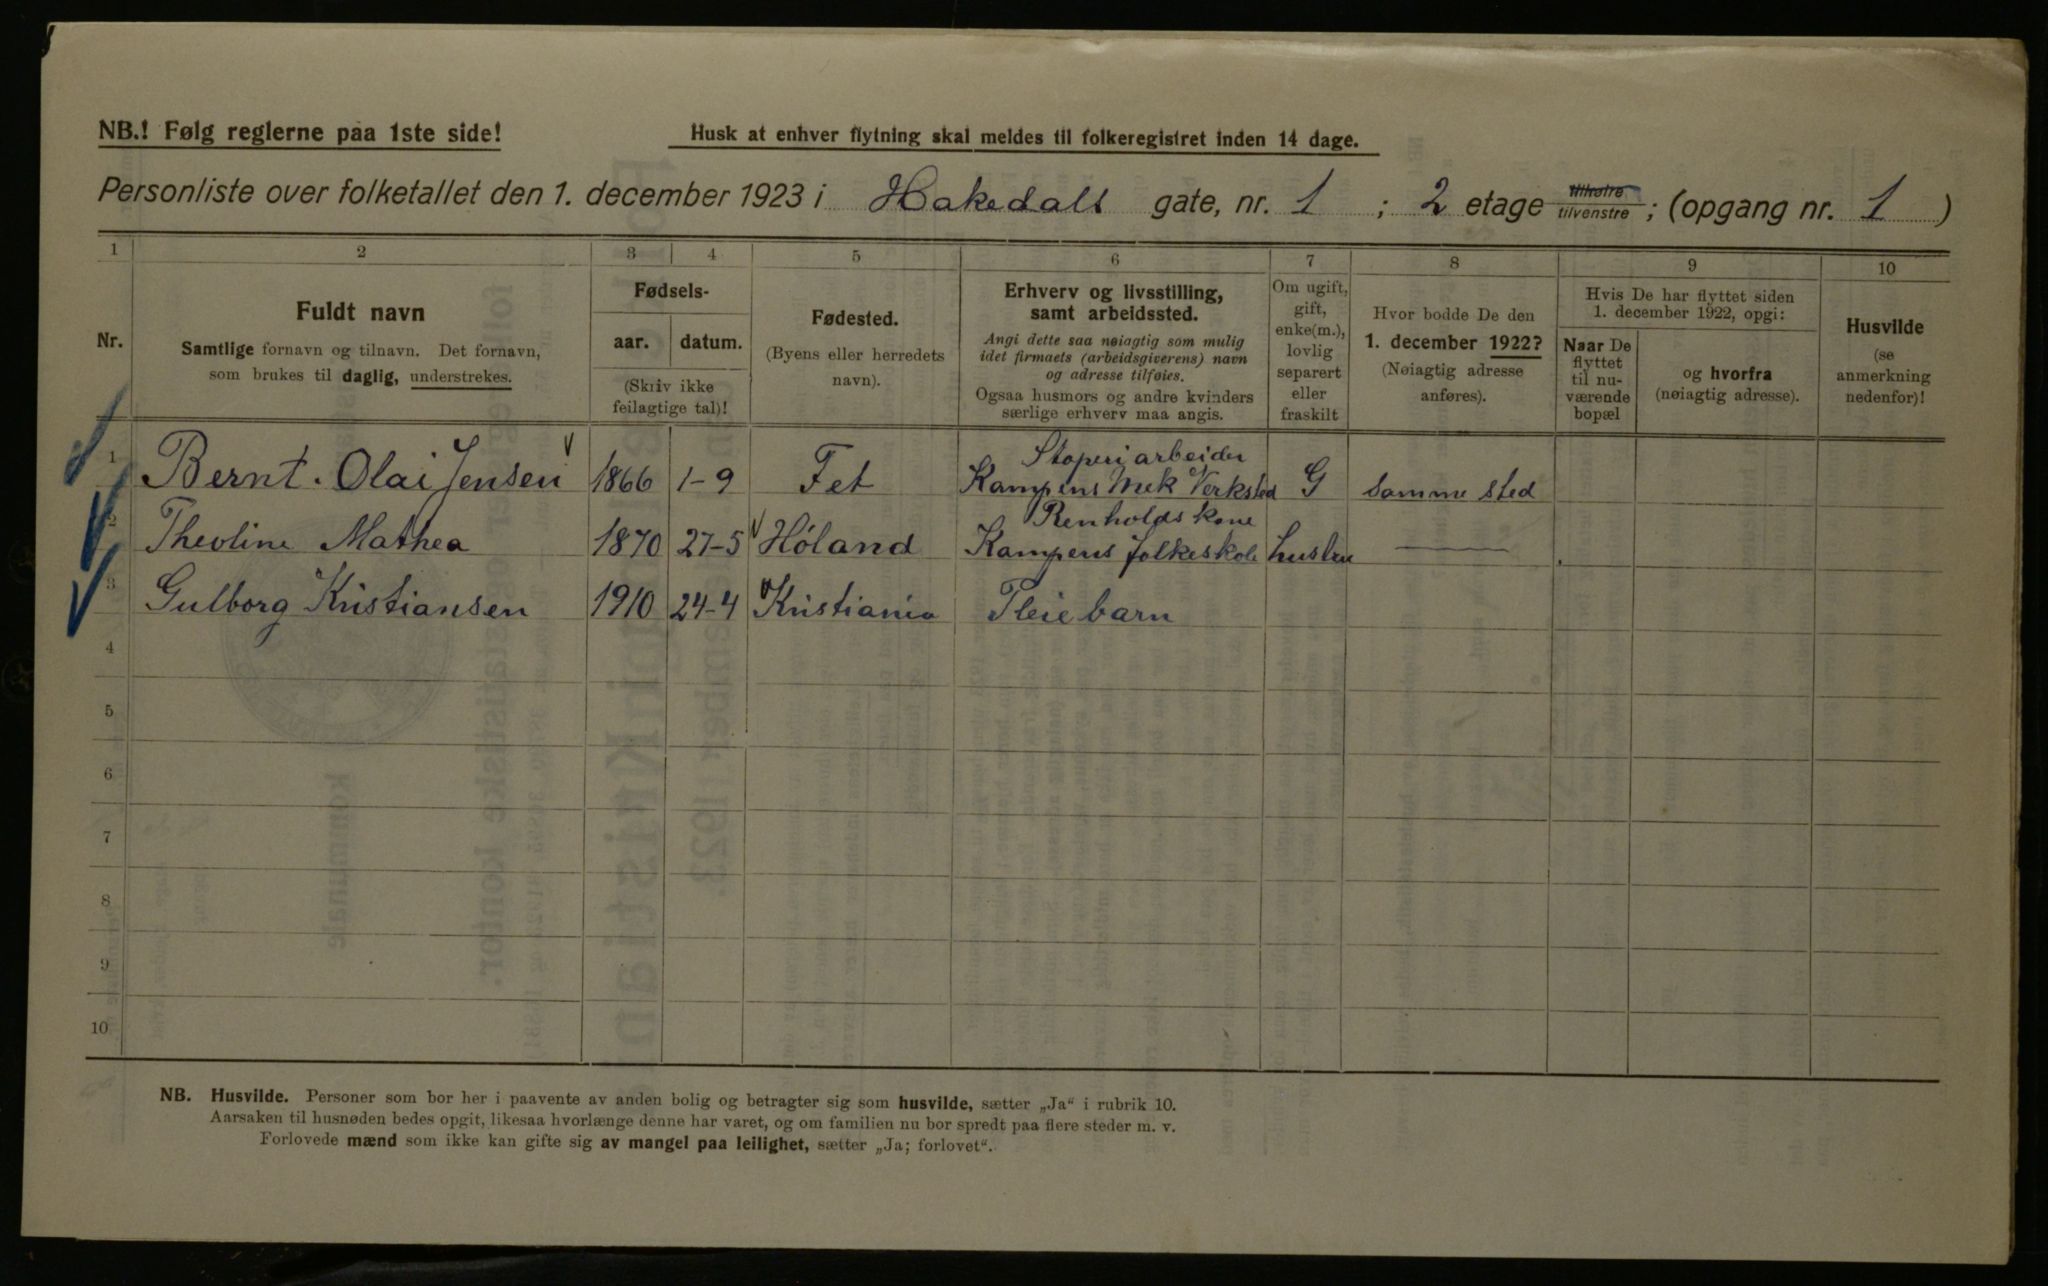 NB.! Følg reglerne paa 1ste side!
Husk at enhver flytning skal meldes til folkeregistret inden 14 dage.
Personliste over folketallet den 1. december 1923 i Hakedals gate, nr. 1 ; 2 etage tilhøire tilvenstre ; (opgang nr. 1 )
1 2 3 4 5 6 7 8 9 10
Nr.
Fuldt navn
Samtlige fornavn og tilnavn. Det fornavn,
som brukes til daglig, understrekes.
Fødsels-
aar. datum.
(Skriv ikke
feilagtige tal)!
Fødested.
(Byens eller herredets
navn).
Erhverv og livsstilling,
samt arbeidssted.
Angi dette saa nøiagtig som mulig
idet firmaets (arbeidsgiverens) navn
og adresse tilføies.
Ogsaa husmors og andre kvinders
særlige erhverv maa angis.
Om ugift,
gift,
enke(m.),
lovlig
separert
eller
fraskilt
Hvor bodde De den
1. december 1922?
(Nøiagtig adresse
anføres).
Hvis De har flyttet siden
1. december 1922, opgi:
Naar De
flyttet
til nu-
værende
bopæl
og hvorfra
(nøiagtig adresse).
Husvilde
(se
anmerkning
nedenfor)!
Støperiarbeider
1 Bernt. Olai Jensen 1866 1-9 Fet Kampens Mek Verksted G samme sted
Renholdskone
2 Theoline Mathea 1870 27-5 Høland Kampens folkeskole hustru —
3 Gulborg Kristiansen 1910 24-4 Kristiania Pleiebarn
4
5
6
7
8
9
10
NB. Husvilde. Personer som bor her i paavente av anden bolig og betragter sig som husvilde, sætter „Ja“ i rubrik 10.
Aarsaken til husnøden bedes opgit, likesaa hvorlænge denne har varet, og om familien nu bor spredt paa flere steder m. v.
Forlovede mænd som ikke kan gifte sig av mangel paa leilighet, sætter „Ja; forlovet“.